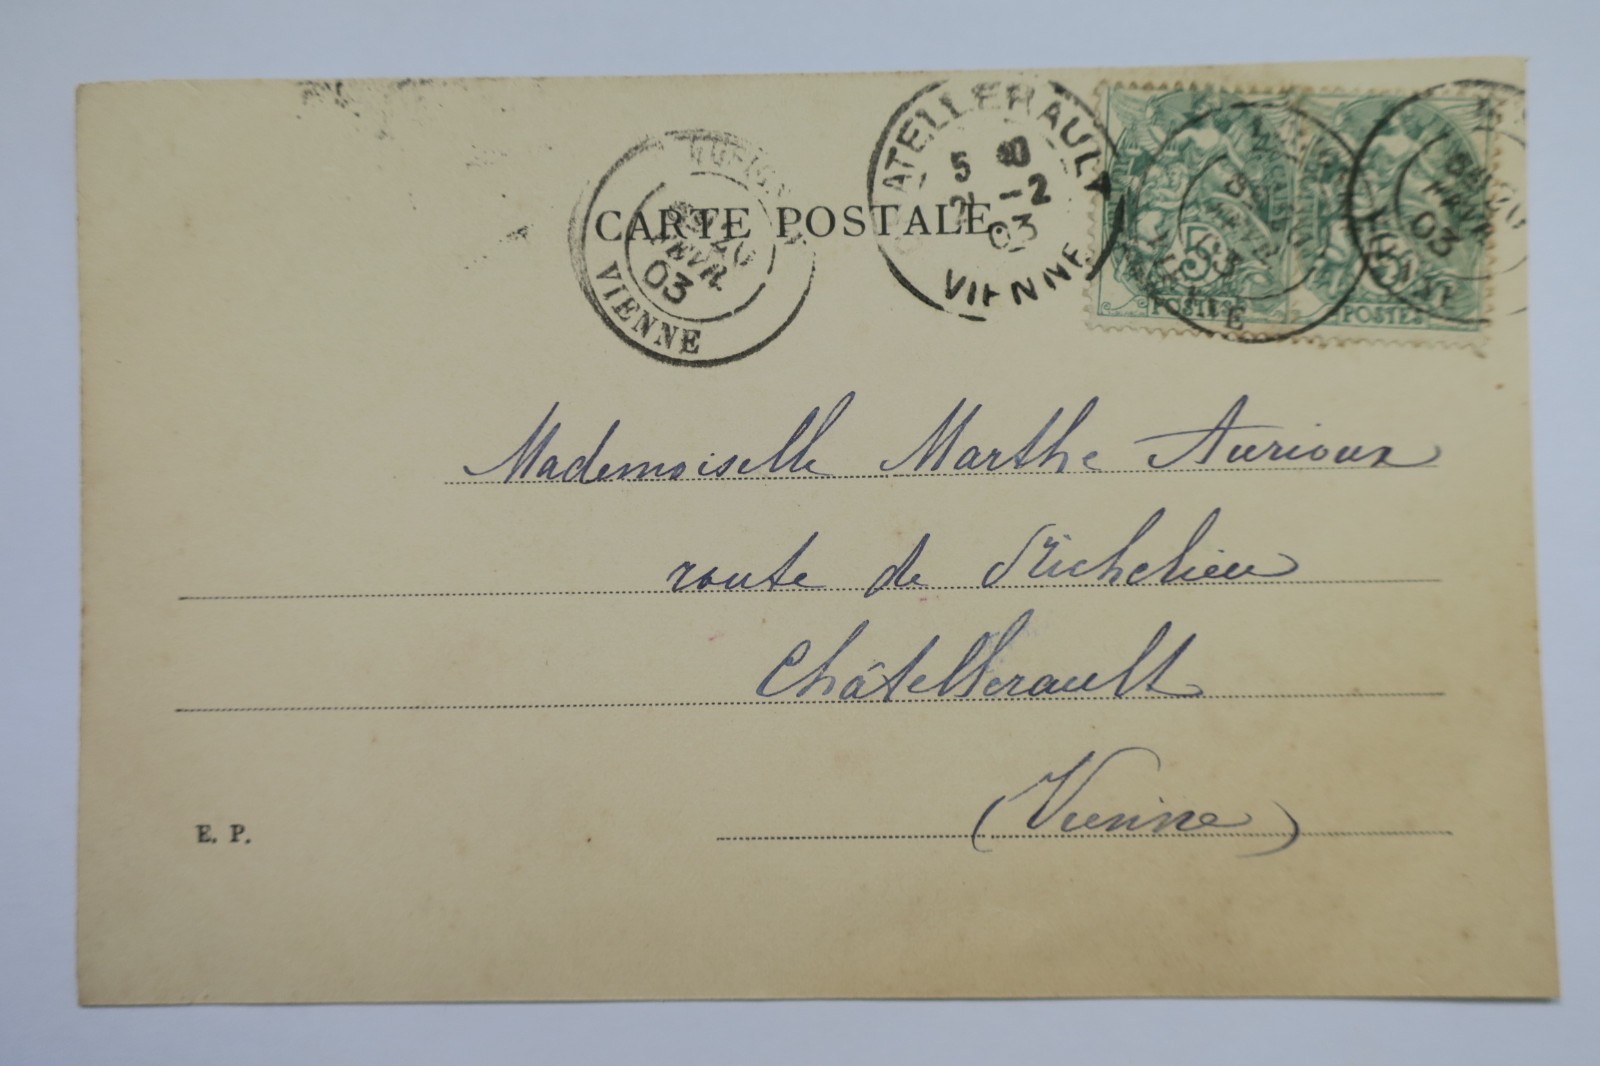 CARTE POSTALE
FEVR
03
VIENNE
CHATELLERAULT
5
-2
03
VIENNE
5
POSTES
5
POSTES
03
Mademoiselle Marthe Aurioux
route de Richelieu
Châtellerault
(Vienne)
E. P.